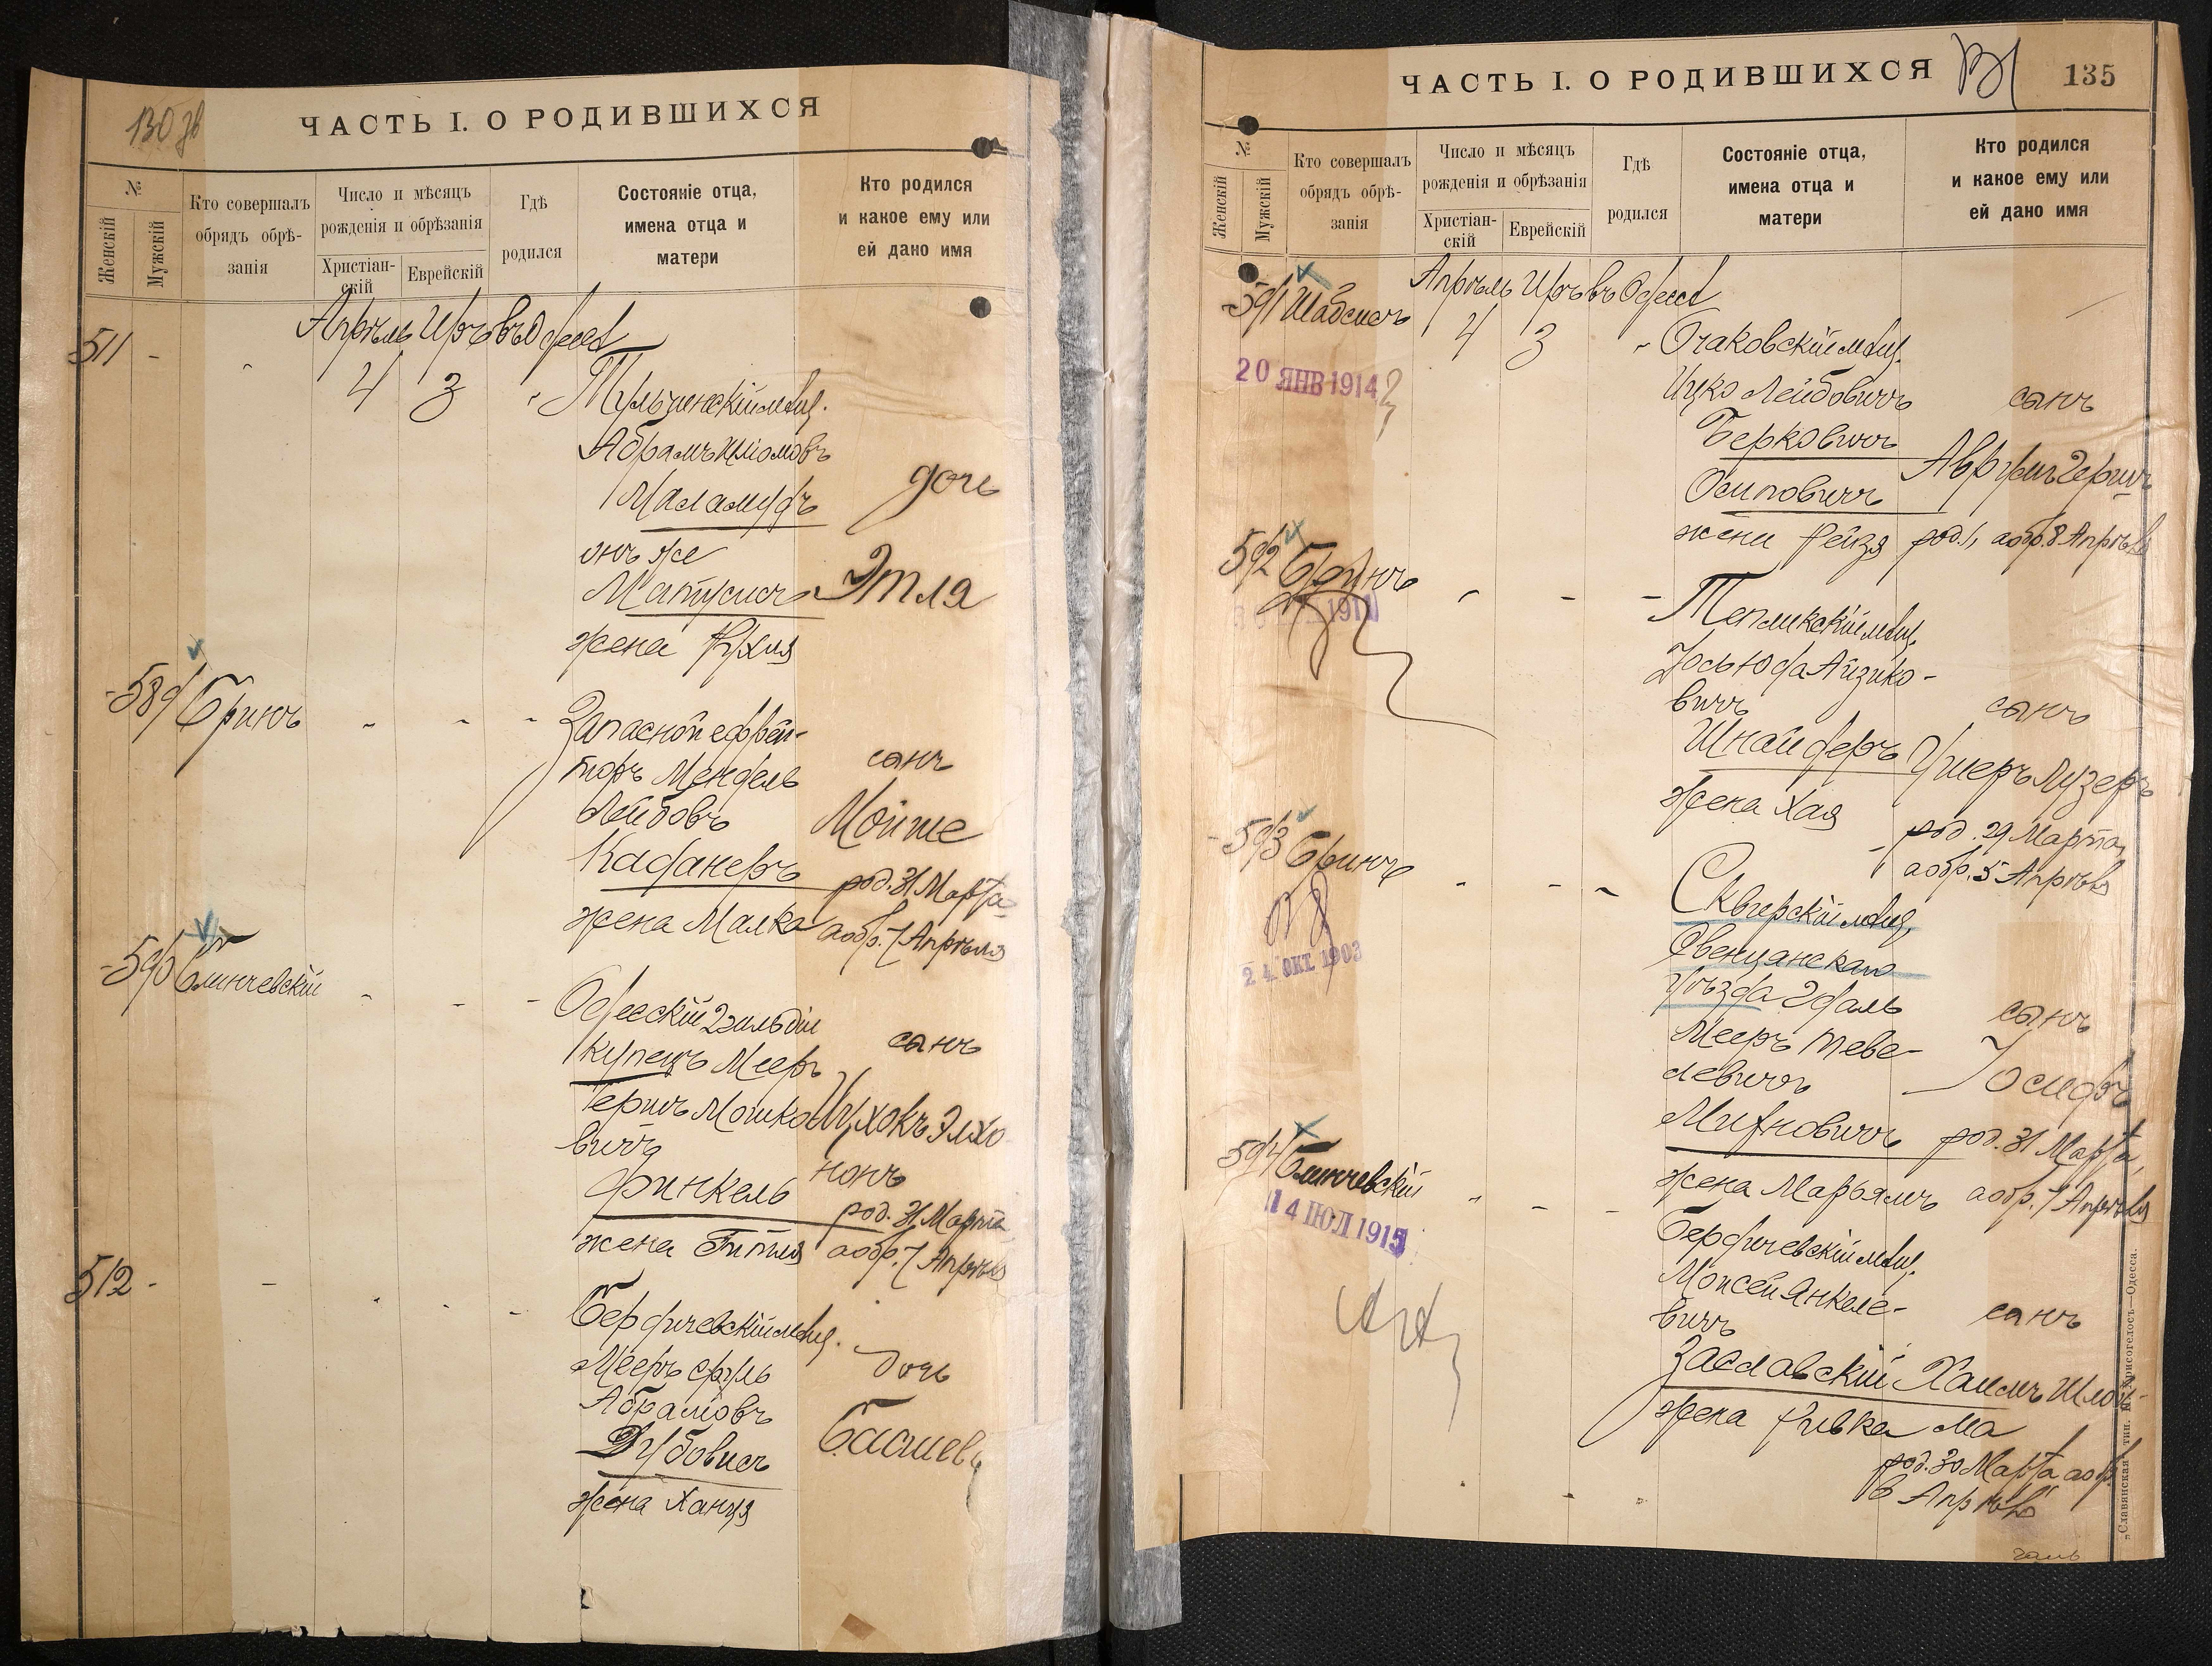 130 зв
ЧАСТЬ I. О РОДИВШИХСЯ
№
Женскій
Мужскій
Кто совершалъ
обрядъ обрѣ-
занія
Число и мѣсяцъ
рожденія и обрѣзанія
Христіан-
скій
Еврейскій
Гдѣ
родился
Состояніе отца,
имена отца и
матери
Кто родился
и какое ему или
ей дано имя
Апрѣль Иръ въ Одессѣ
511 - - 4 3 " Тульчинскій мѣщ.
Абрамъ Шіомовъ
Маламудъ
дочь
онъ же
Матусисъ
Этля
жена Рухля
589 Бринъ - - - Запасной ефрей-
торъ Мендель
сынъ
Лейбовъ
Мойше
Кадонеръ
род. 31 Марта
жена Малка
а обр. 7 Апрѣля
590 Блинчевскій - - - Одесскій 2 гильдіи
купецъ Мееръ
сынъ
Гершъ Мошко-
вичъ
Ицхокъ Элхо
нонъ
Финкель
род. 31 Марта
жена Гитля
а обр. 7 Апрѣля
512 - - - - - Бердичевскій мѣщ.
Мееръ Сруль
дочь
Абрамовъ
Дубовисъ
Басшева
жена Ханця
ЧАСТЬ I. О РОДИВШИХСЯ
135
№
Женскій
Мужскій
Кто совершалъ
обрядъ обрѣ-
занія
Число и мѣсяцъ
рожденія и обрѣзанія
Христіан-
скій
Еврейскій
Гдѣ
родился
Состояніе отца,
имена отца и
матери
Кто родился
и какое ему или
ей дано имя
Апрѣль Иръ въ Одессѣ
591 Шабсисъ 4 3 " Очаковскій мѣщ.
20 ЯНВ 1914
Ицко Лейбовичъ
сынъ
Берковичъ
Осиповичъ
Аврумъ Гершъ
жена Рейзя
род. 1, а обр. 8 Апрѣля
592 Бринъ - - - Тепликскій мѣщ.
Іось Юда Айзико-
вичъ
сынъ
Шнайдеръ
Ушеръ Лузеръ
жена Хая
род. 29 Марта,
а обр. 5 Апрѣля
593 Бринъ - - - Сквирскій мѣщ.
24 ОКТ. 1903
Свенцянскаго
уѣзда Эдаль
сынъ
Мееръ Теве-
левичъ
Іосифъ
род. 31 Марта,
жена Марьямъ
а обр. 7 Апрѣля
594 Блинчевскій - - - Бердичевскій мѣщ.
14 ІЮЛ 1915
Моисей Янкеле-
вичъ
сынъ
Заславскій
Хаимъ Шлой-
ма
жена Ривка
род. 30 Марта а обр.
6 Апрѣля
„Славянская“ тип. Н. Хрисогелосъ—Одесса.